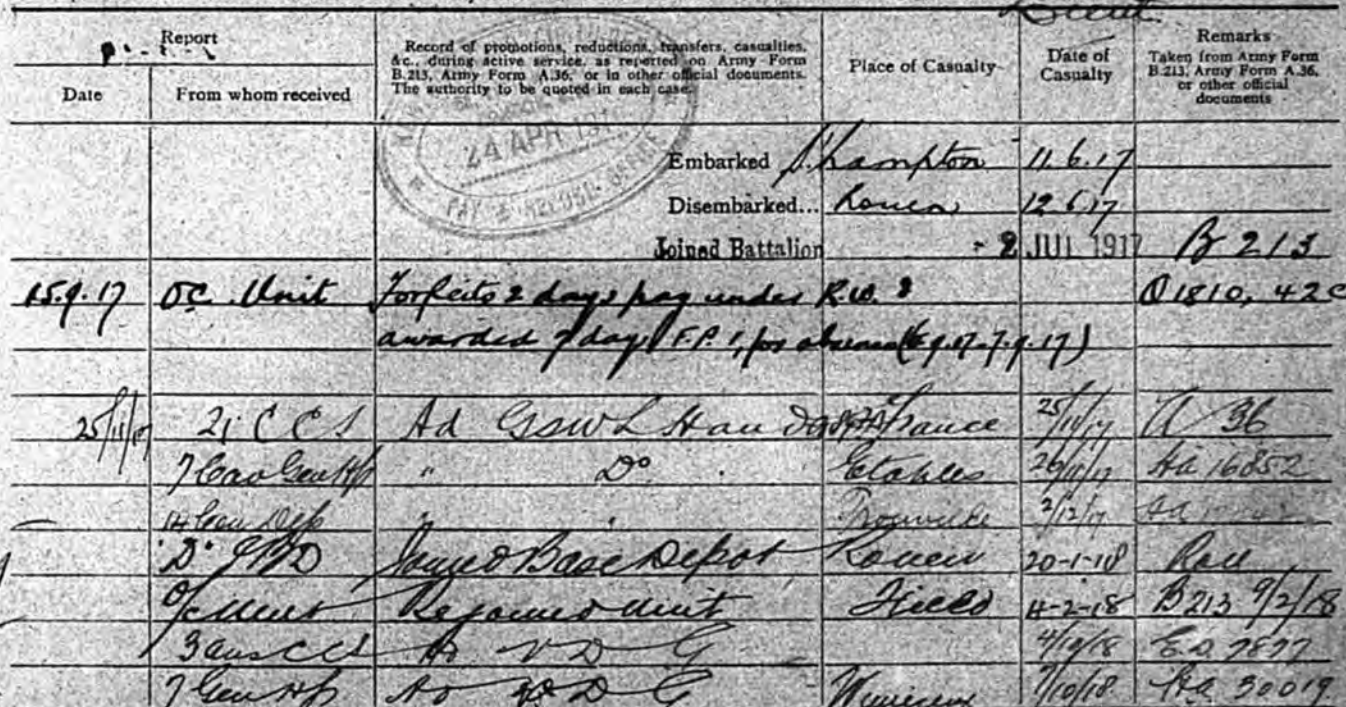 Report
Date
From whom received
Record of promotions, reductions, transfers, casualties, &c., during active service, as reported on Army Form B.213, Army Form A.36, or in other official documents. The authority to be quoted in each case.
Place of Casualty
Date of Casualty
Remarks
Taken from Army Form B.213, Army Form A.36, or other official documents
24 APR 191
PAY
OFFICE
Embarked S'hampton 11.6.17
Disembarked... Rouen 12.6.17
Joined Battalion - 2 JUL 1917 B 213
15.9.17 OC. Unit Forfeits 2 days pay under R.W. O 1810, 42
awarded 7 days F.P. 1, for absence (6.9.17-7.9.17)
25/11/17 21 C C S Ad GSW L Hand France 25/11/17 A 36
7 Can Gen Hp " Do Etaples 26/11/17 HA 16852
14 Con Dep " " Trouville 2/12/17
"D" IBD Joined Base Depot Rouen 20-1-18 Roll
O/C Unit Rejoined Unit Field 4-2-18 B213 9/2/18
3 Aus CCS Ad V D G 4/10/18 E.D. 7877
7 Gen Hp Ad V D G Wimereux 7/10/18 HA 30019